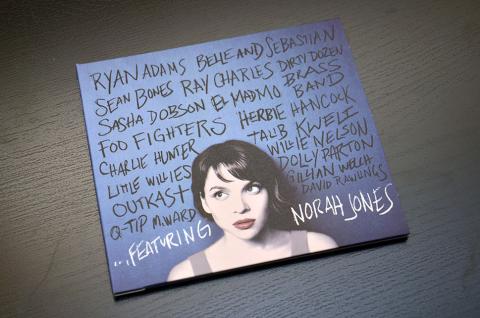 RYAN ADAMS BELLE AND SEBASTIAN
SEAN BONES RAY CHARLES DIRTY DOZEN
SASHA DOBSON EL MADMO BRASS
FOO FIGHTERS HERBIE HANCOCK BAND
CHARLIE HUNTER TALIB KWELI
LITTLE WILLIES WILLIE NELSON
OUTKAST DOLLY PARTON
Q-TIP M. WARD GILLIAN WELCH
DAVID RAWLINGS
...FEATURING NORAH JONES